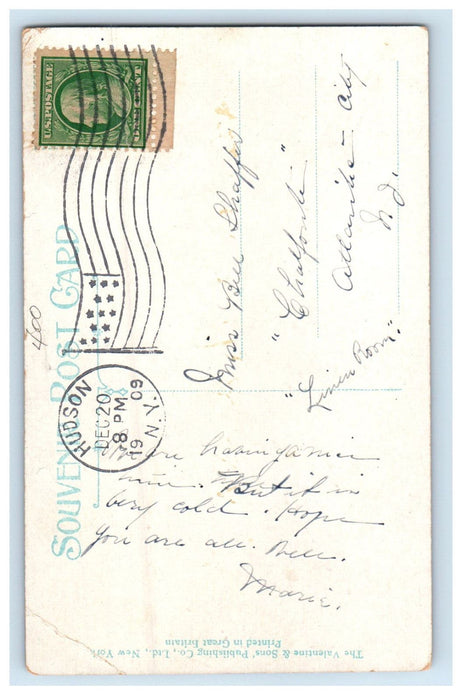 U.S. POSTAGE
ONE CENT
SOUVENIR POST CARD
400
HUDSON
DEC 20
8 PM
19 09
N.Y.
Miss Bee Shaffer
"Chalfonte"
Atlantic City
N.J.
"Linen Room".
are having a nice
time. But it is
very cold. Hope
you are all. Well.
Marie.
The Valentine & Sons' Publishing Co., Ltd., New York
Printed in Great Britain